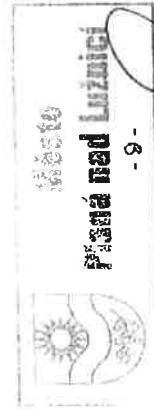 Město
Planá nad Lužnicí
- 6 -